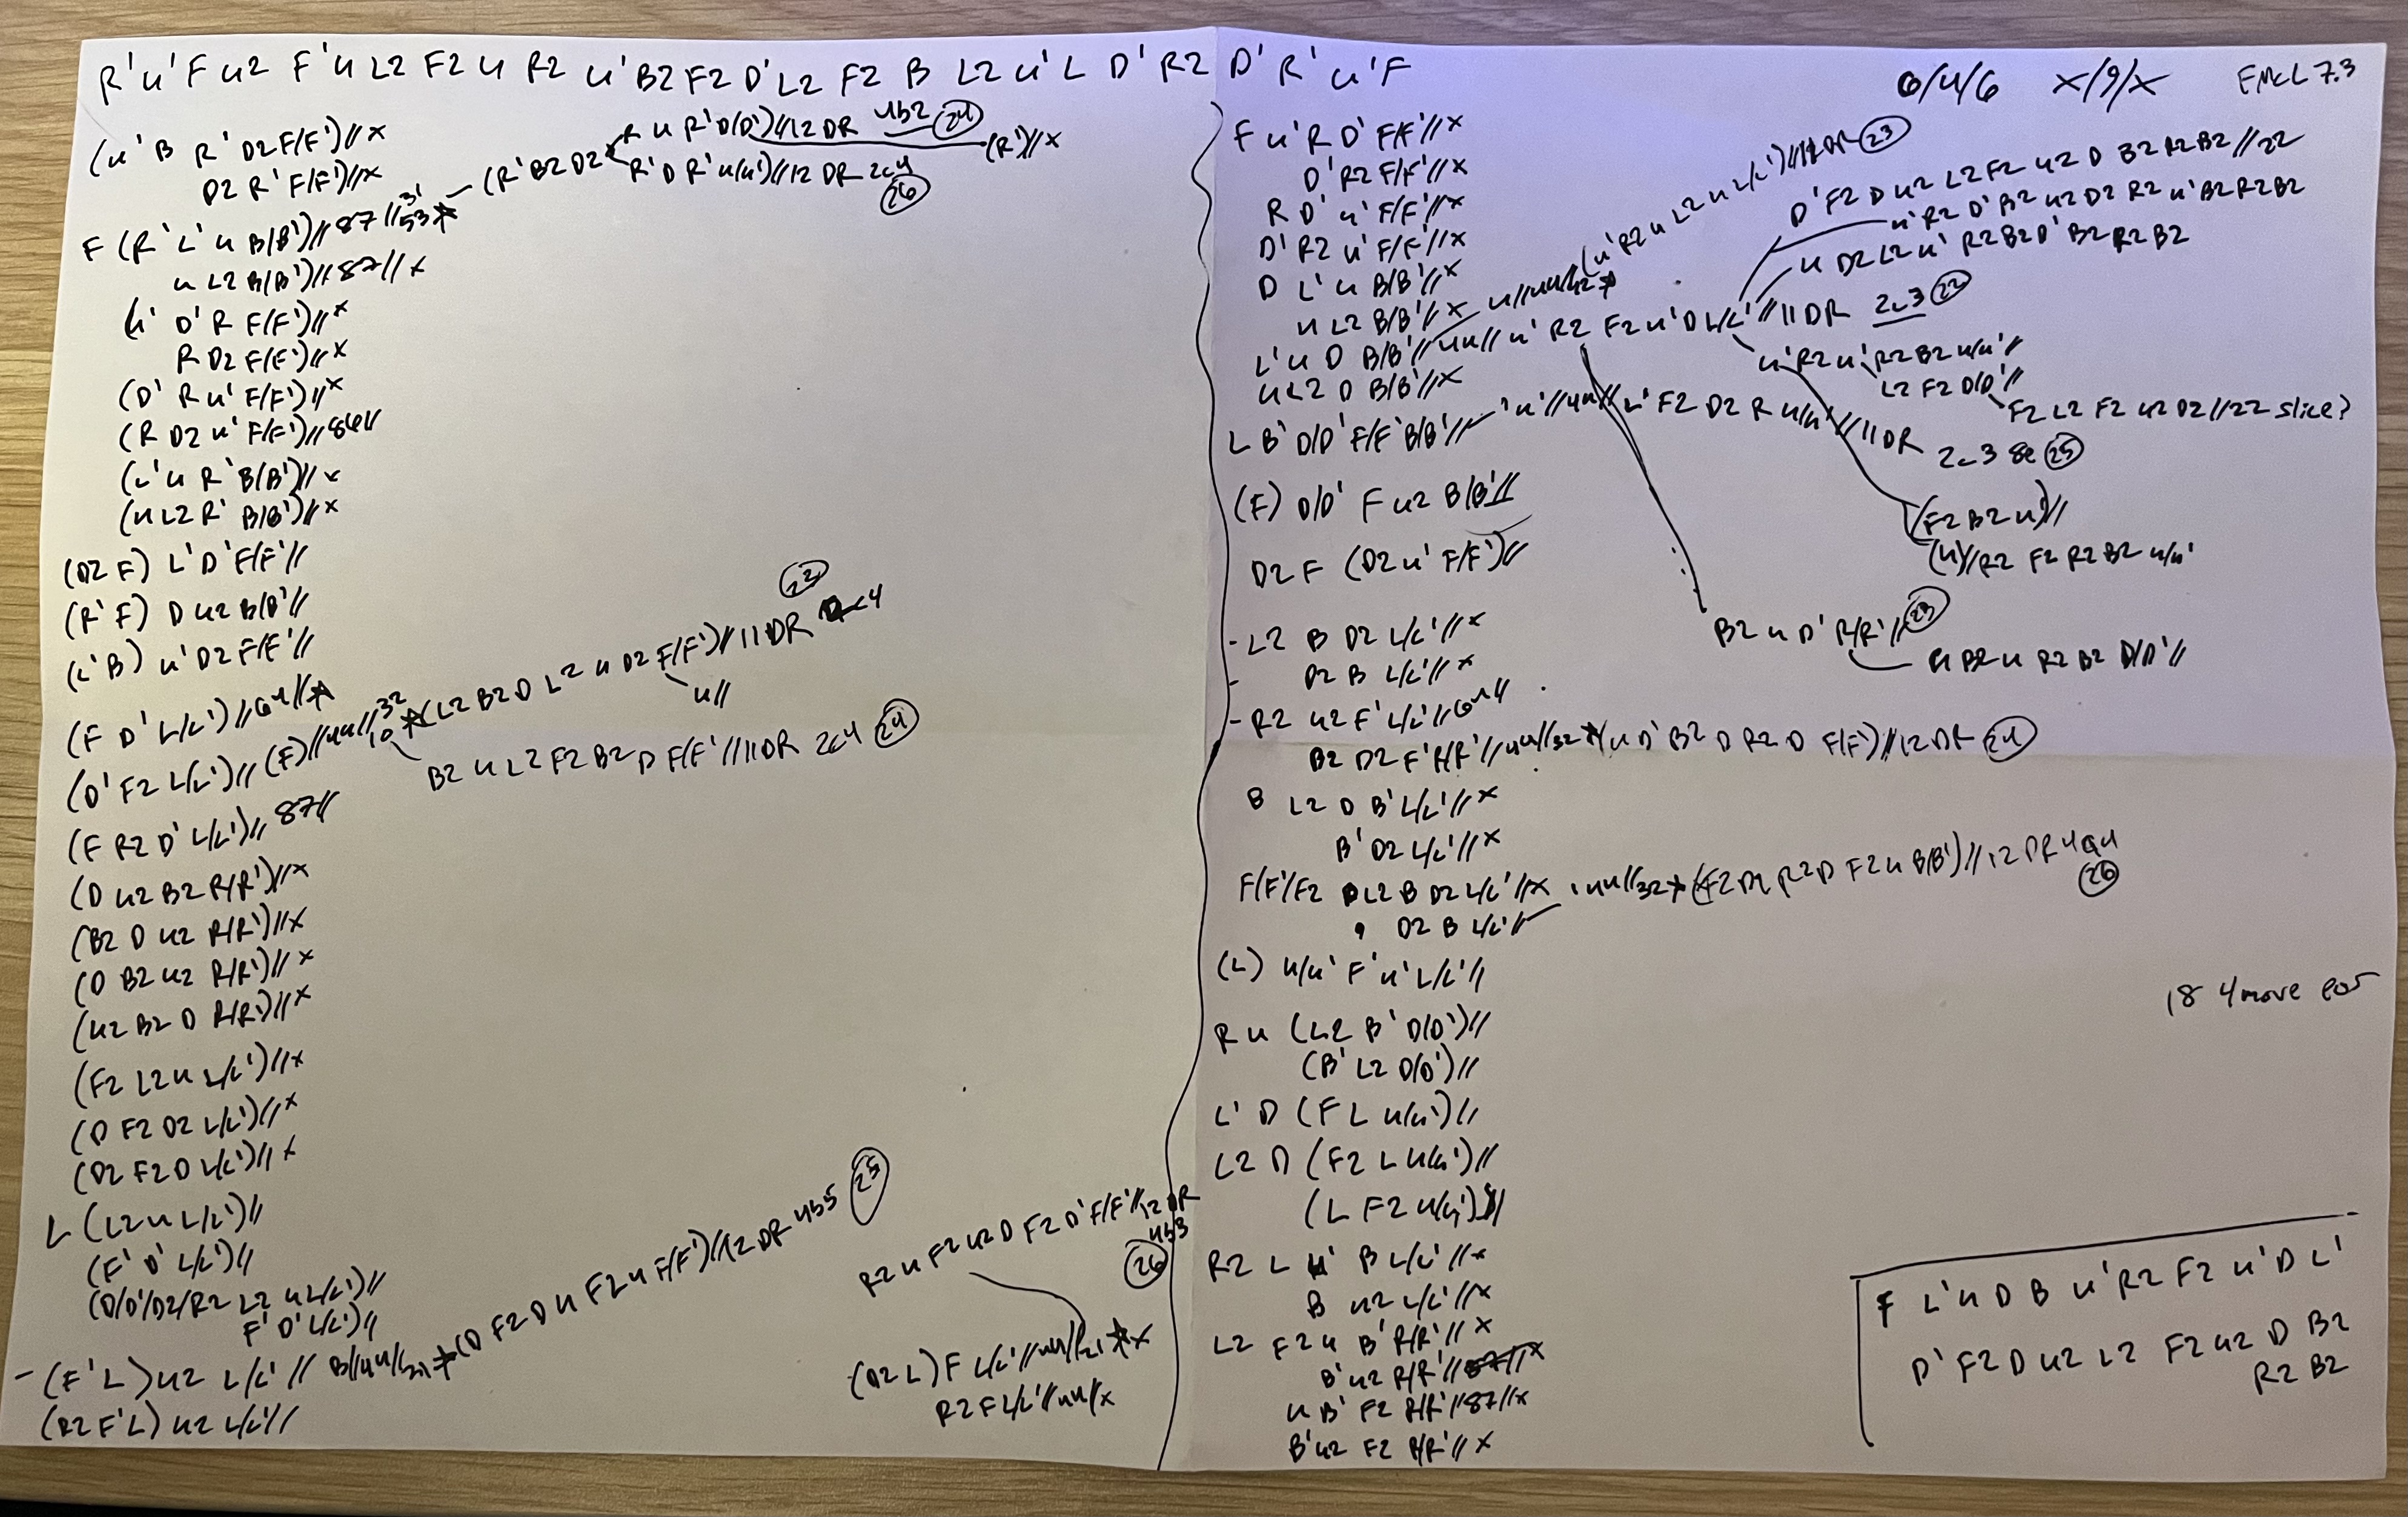 R'u'F u2 F'u L2 F2 u R2 u'B2 F2 D'L2 F2 B L2 u'L D'R2 D'R'u'F
0/4/6 x/9/x FMCL 7.3
(u'B R'D2 F/F')//x
D2 R'F/F')//x
F (R'L'u B/B')//87//53* 31 - (R'B2 D2
R u R'D(D')//12 DR 4b2 (24) (R')//x
R'D R'u(u')//12 DR 2c4 (26)
u L2 B/B')//87//x
(u' D'R F/F')//x
R D2 F/F')//x
(D' R u' F/F')//x
(R D2 u' F/F')//86//
(L'u R'B(B')//x
(u L2 R' B/B')//x
(D2 F) L'D'F/F'//
(R'F) D u2 B/B'//
(L'B) u'D2 F/F'//
(F D'L/L')//64//*
(D'F2 L/L')// (F)//44//32 10 *(L2 B2 D L2 u D2 F/F')//11 DR 2c4 (23)
u//
B2 u L2 F2 B2 D F/F'//11 DR 2c4 (24)
(F R2 D'L/L')// 87//
(D u2 B2 R/R')//x
(B2 D u2 R/R')//x
(D B2 u2 R/R')//x
(u2 B2 D R/R')//x
(F2 L2 u L/L')//x
(D F2 D2 L/L')//x
(D2 F2 D L/L')//x
L (L2 u L/L')//
(F'D'L/L')//
(D/D'/D2/R2 L2 u L/L')//
F'D'L/L')//
- (F'L) u2 L/L' // B//44//31* (D F2 D u F2 u F/F')//12 DR 4b5 (25)
(R2 F'L) u2 L/L'//
R2 u F2 u2 D F2 D'F/F'//12 DR 4b3 (26)
(D2 L) F L/L'//44//21 *x
R2 F L/L'//44//x
F u'R D' F/F'//x
D'R2 F/F'//x
R D' u' F/F'//x
D'R2 u' F/F'//x
D L'u B/B'//x
u L2 B/B'//x
L'u D B/B'//44// u'R2 F2 u'D L/L'//11 DR 2c3 (22)
u//44//42* (u'R2 u L2 u2 L/L')//12 DR (23)
D'F2 D u2 L2 F2 u2 D B2 R2 B2 //22
u'R2 D'B2 u2 D2 R2 u'B2 R2 B2
u D2 L2 u' R2 B2 D' B2 R2 B2
u'R2 u' R2 B2 u/u'//
L2 F2 D/D'//
F2 L2 F2 u2 D2 //22 slice?
(F2 B2 u)//
(u)//R2 F2 R2 B2 u/u'
B2 u D' R/R'// (23)
u B2 u R2 B2 D/D'//
u L2 D B/B'//x
L B'D/D'F/F'B/B'// 'u'//44// L'F2 D2 R u/u'//11 DR 2c3 8e (25)
(F) D/D' F u2 B/B'//
D2 F (D2 u' F/F')//
- L2 B D2 L/L'//x
- D2 B L/L'//x
- R2 u2 F'L/L'//64//
B2 D2 F'R/R'//44//32*(u D'B2 D R2 D F/F')//12 DR (24)
B L2 D B'L/L'//x
B'D2 L/L'//x
F/F'/F2 L2 B D2 L/L'//x
D2 B L/L'// 44//32*(F2 D2 R2 D F2 u B/B')//12 DR 4a4 (26)
(L) u/u' F'u'L/L'//
R u (L2 B' D/D')//
(B' L2 D/D')//
L' D (F L u/u')//
L2 D (F2 L u/u')//
(L F2 u/u')//
R2 L u' B L/L'//x
B u2 L/L'//x
L2 F2 u B'R/R'//x
B'u2 R/R'//87//x
u B' F2 R/R'//87//x
B'u2 F2 R/R'//x
18 4move eos
F L'u D B u'R2 F2 u'D L'
D'F2 D u2 L2 F2 u2 D B2
R2 B2